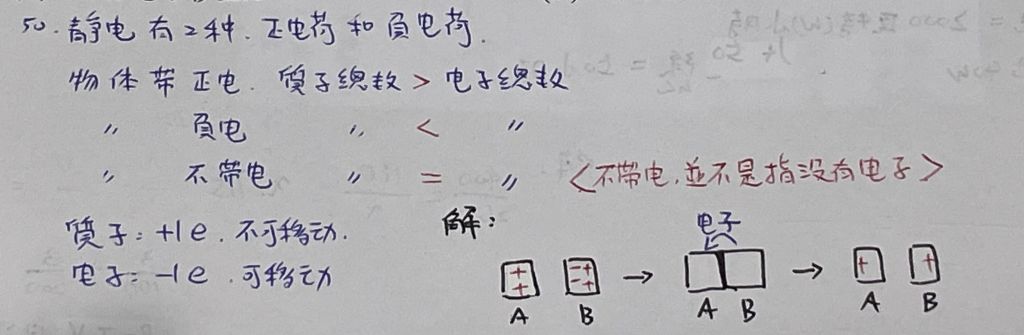 50. 静电有2种. 正电荷和負电荷.
物体带正电. 質子總数 > 电子總数
〃 負电 〃 < 〃
〃 不帶电 〃 = 〃 <不帶电,並不是指沒有电子>
質子: +1e. 不可移动.
电子: -1e. 可移动
解:
电子
+ + - + - + → → + +
A B A B A B